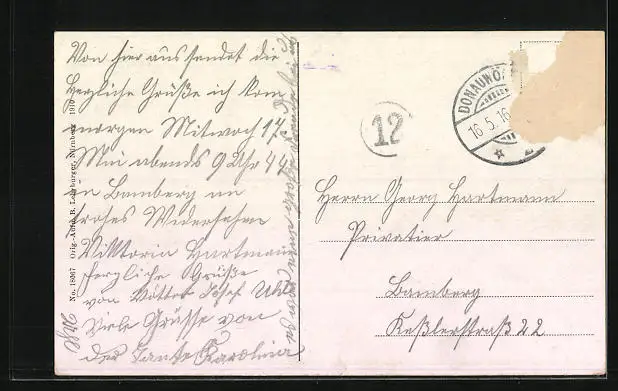 Von hier aus sendet die
Herzliche Grüße ich kom
morgen Mittwoch 17.
Mai abends 9 Uhr 44
in Bamberg an
frohes Wiedersehen
Viktoria Hartmann
Herzliche Grüße
von Vetter Josef Uhl
Viele Grüsse von
der Tante Karolina
No. 18367 Orig.-Aufn. B. Lehrburger, Nürnberg 1910
12
DONAUWÖ
16.5.16
Herrn Georg Hartmann
Privatier
Bamberg
Keßlerstraß 22